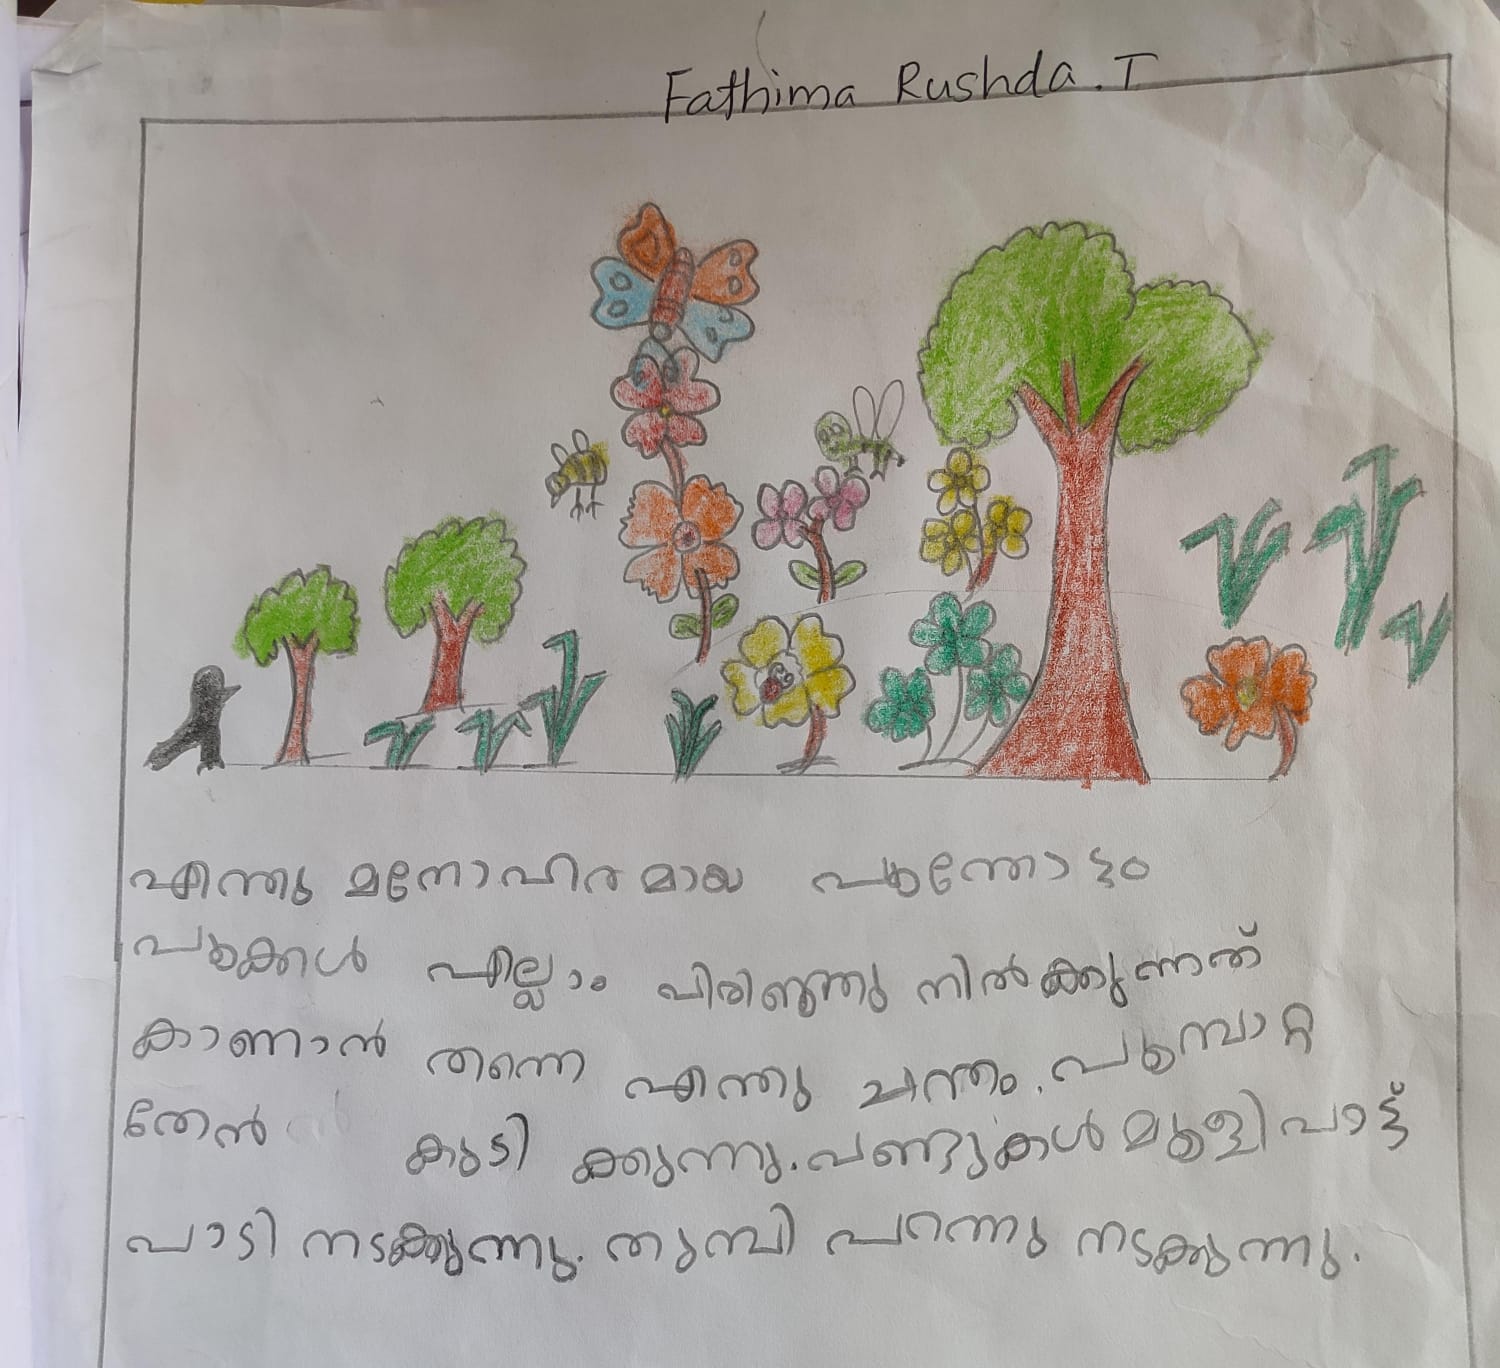 Fathima Rushda. T
എന്തു മനോഹരമായ പൂന്തോട്ടം
പൂക്കൾ എല്ലാം വിരിഞ്ഞു നിൽക്കുന്നത്
കാണാൻ തന്നെ എന്തു ചന്തം. പൂമ്പാറ്റ
തേൻ കുടി ക്കുന്നു. വണ്ടുകൾ മൂളി പാട്ട്
പാടി നടക്കുന്നു. തുമ്പി പറന്നു നടക്കുന്നു.